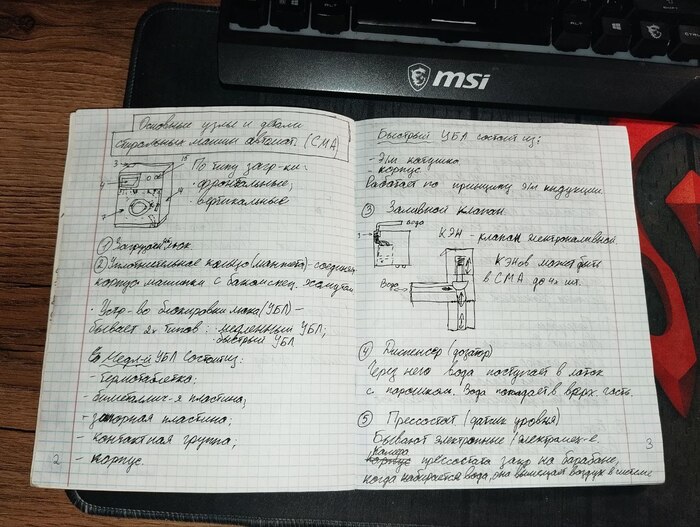 msi
Основные узлы и детали
стиральных машин автомат. (СМА)
По типу загр-ки:
· фронтальные;
· вертикальные
3
4
2
① Загрузочн. люк
② Уплотнительное кольцо (манжета) - соедин.
корпус машинки с баком спец. хомутам
· Устр-во блокировки люка (УБЛ) -
бывает 2х типов: медленный УБЛ;
· быстрый УБЛ
Медл-й УБЛ состоит из:
- термотаблетка;
- биметаллич-я пластина;
- запорная пластина;
- контактная группа;
- корпус.
2
Быстрый УБЛ состоит из:
- Э/м катушка
- корпус
Работает по принципу э/м индукции.
③ Заливной клапан
вода
3
КЭН - клапан электроналивной.
КЭНов может быть
в СМА до 4х шт.
Вода
④ Диспенсер (дозатор)
Через него вода поступает в лоток
с порошком. Вода попадает в верх. часть.
⑤ Прессостат (датчик уровня)
Бывают электронные / электромех-е.
Камера
корпус прессостата на барабане,
когда набирается вода, она вымещает воздух в системе
3